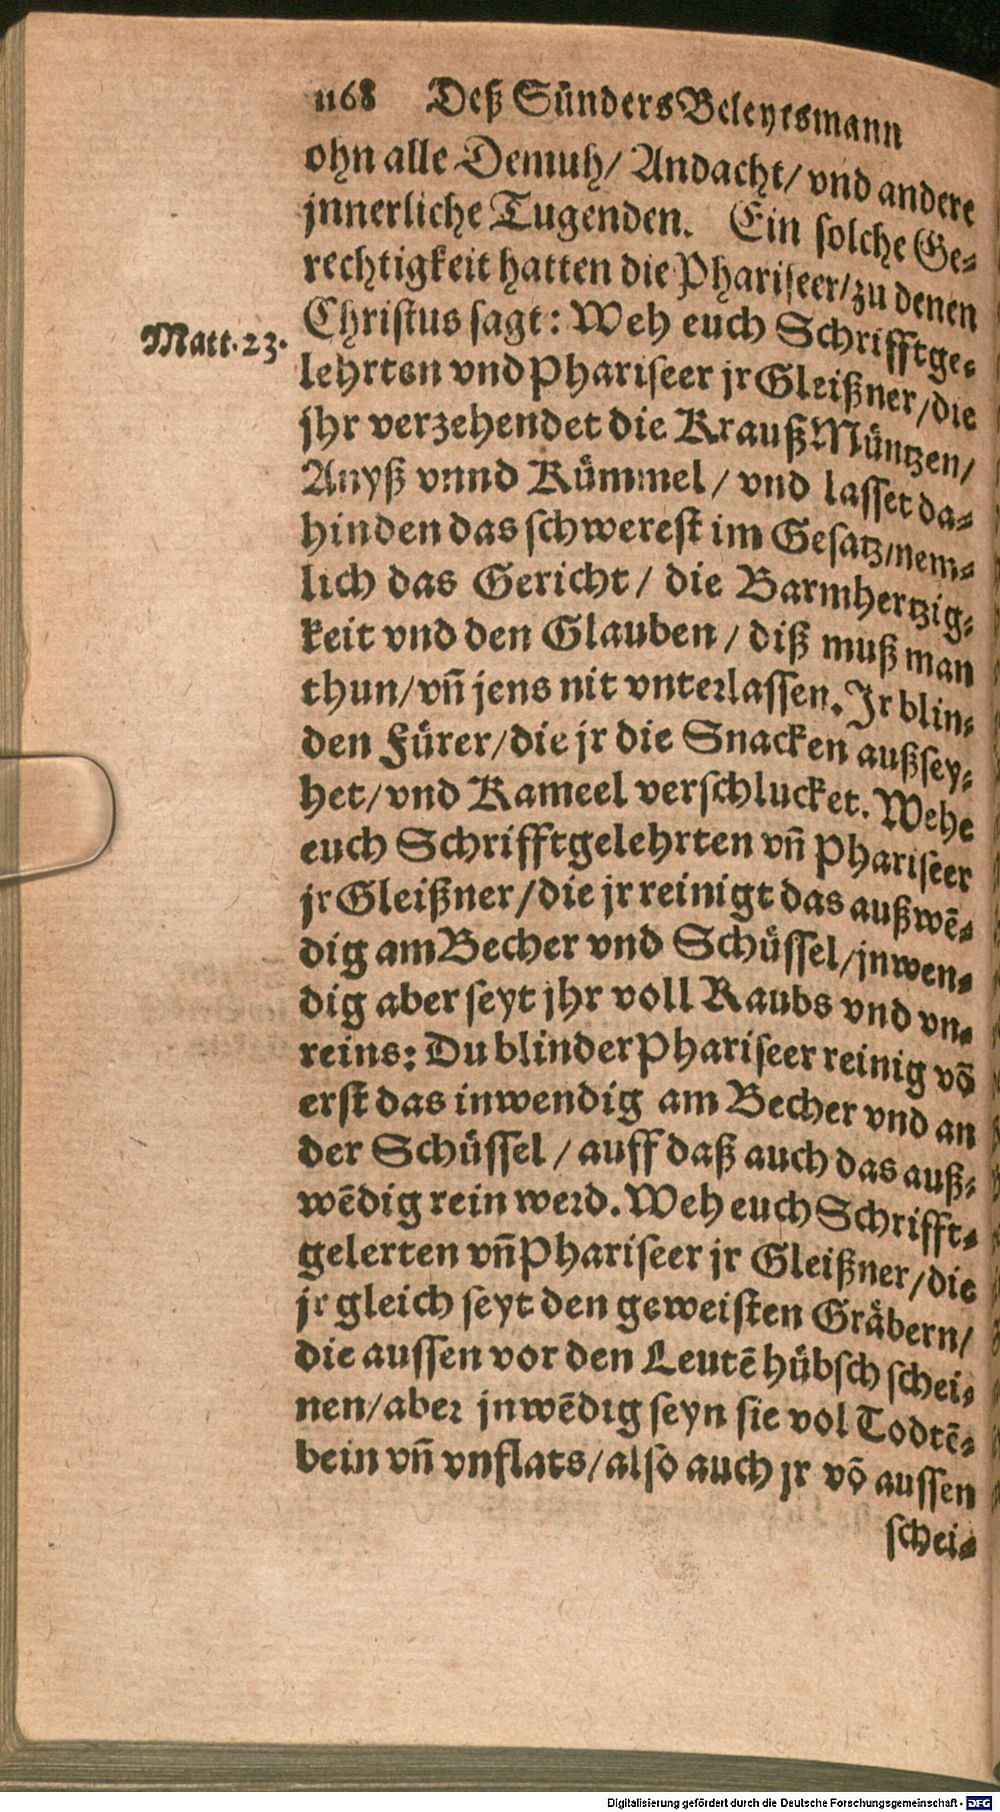 1168 Deß Sünders Beleytsmann
ohn alle Demuh/ Andacht/ vnd andere
jnnerliche Tugenden. Ein solche Ge-
rechtigkeit hatten die Phariseer/ zu denen
Matt. 23.
Christus sagt: Weh euch Schrifftge-
lehrten vnd Phariseer jr Gleißner/ die
jhr verzehendet die Krauß Müntzen/
Anyß vnnd Kümmel/ vnd lasset da-
hinden das schwerest im Gesatz/ nem-
lich das Gericht/ die Barmhertzig-
keit vnd den Glauben/ diß muß man
thun/ vn̄ jens nit vnterlassen. Jr blin-
den Fürer/ die jr die Snacken außsey-
het/ vnd Kameel verschlucket. Wehe
euch Schrifftgelehrten vn̄ Phariseer
jr Gleißner/ die jr reinigt das außwē-
dig am Becher vnd Schüssel/ jnwen-
dig aber seyt jhr voll Raubs vnd vn-
reins: Du blinder Phariseer reinig vō
erst das inwendig am Becher vnd an
der Schüssel/ auff daß auch das auß-
wēdig rein werd. Weh euch Schrifft-
gelerten vn̄ Phariseer jr Gleißner/ die
jr gleich seyt den geweisten Gräbern/
die aussen vor den Leutē hübsch schei-
nen/ aber jnwēdig seyn sie vol Todtē-
bein vn̄ vnflats/ also auch jr vō aussen
schei-
Digitalisierung gefördert durch die Deutsche Forschungsgemeinschaft - DFG